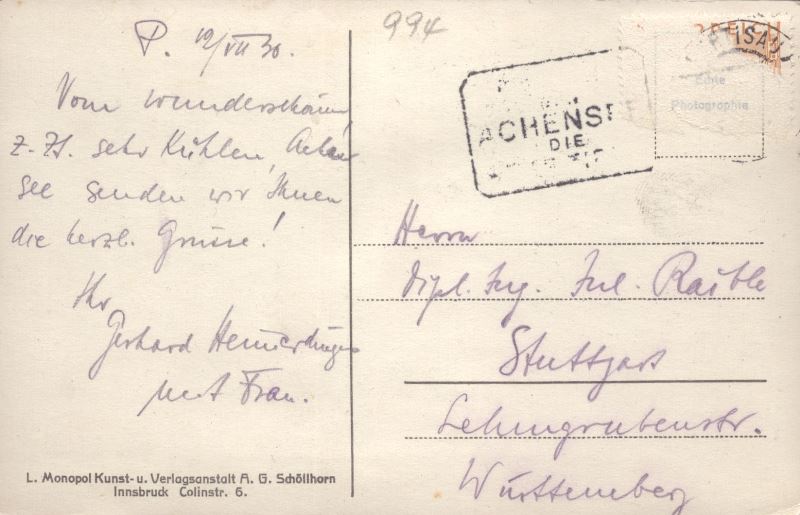 P. 12/VII 30.
994
Vom wunderschönen,
z. Zt. sehr kühlen, Achen
see senden wir Ihnen
die herzl. Grüsse!
Ihr
Gerhard Heimerdinger
mit Frau.
L. Monopol Kunst- u. Verlagsanstalt A. G. Schöllhorn
Innsbruck Colinstr. 6.
TISAU
Echte
Photographie
ACHENS
DIE
Herrn
Dipl. Ing. Jul. Raible
Stuttgart
Lehmgrubenstr.
Württemberg